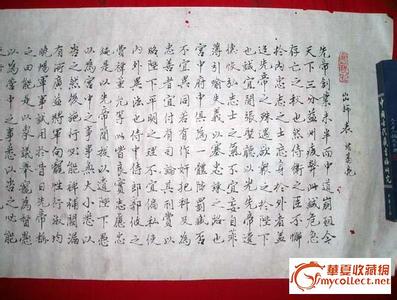 出師表 諸葛亮
先帝創業未半而中道崩殂今
天下三分益州疲弊此誠危急
存亡之秋也然侍衛之臣不懈
於內忠志之士忘身於外者蓋
追先帝之殊遇欲報之於陛下
也誠宜開張聖聽以光先帝遺
德恢弘志士之氣不宜妄自菲
薄引喻失義以塞忠諫之路也
宮中府中俱為一體陟罰臧否
不宜異同若有作奸犯科及為
忠善者宜付有司論其刑賞以
昭陛下平明之理不宜偏私使
內外異法也侍中侍郎郭攸之
費禕董允等此皆良實志慮忠
純是以先帝簡拔以遺陛下愚
以為宮中之事事無大小悉以
咨之然後施行必能裨補闕漏
有所廣益將軍向寵性行淑均
曉暢軍事試用於昔日先帝稱
之曰能是以眾議舉寵為督愚
以為營中之事悉以咨之必能
華夏收藏網
mycollect.net